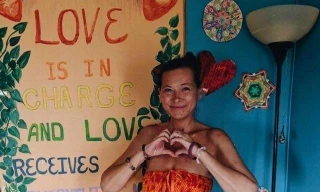 LOVE
IS IN
CHARGE
AND LOVE
RECEIVES